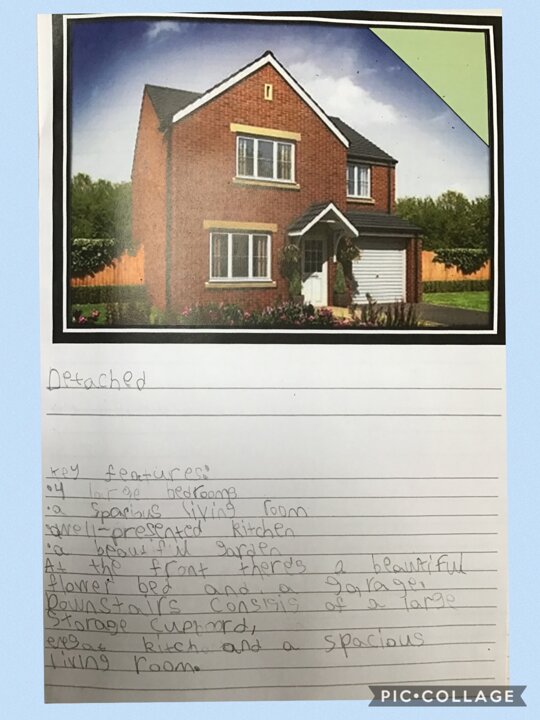 Detached
key features:
·4 large bedrooms
·a spacious living room
·well-presented kitchen
·a beautiful garden
At the front there's a beautiful
flower bed and a garage.
Downstairs consists of a large
Storage cupbord,
kitch and a spacious
living room.
PIC•COLLAGE